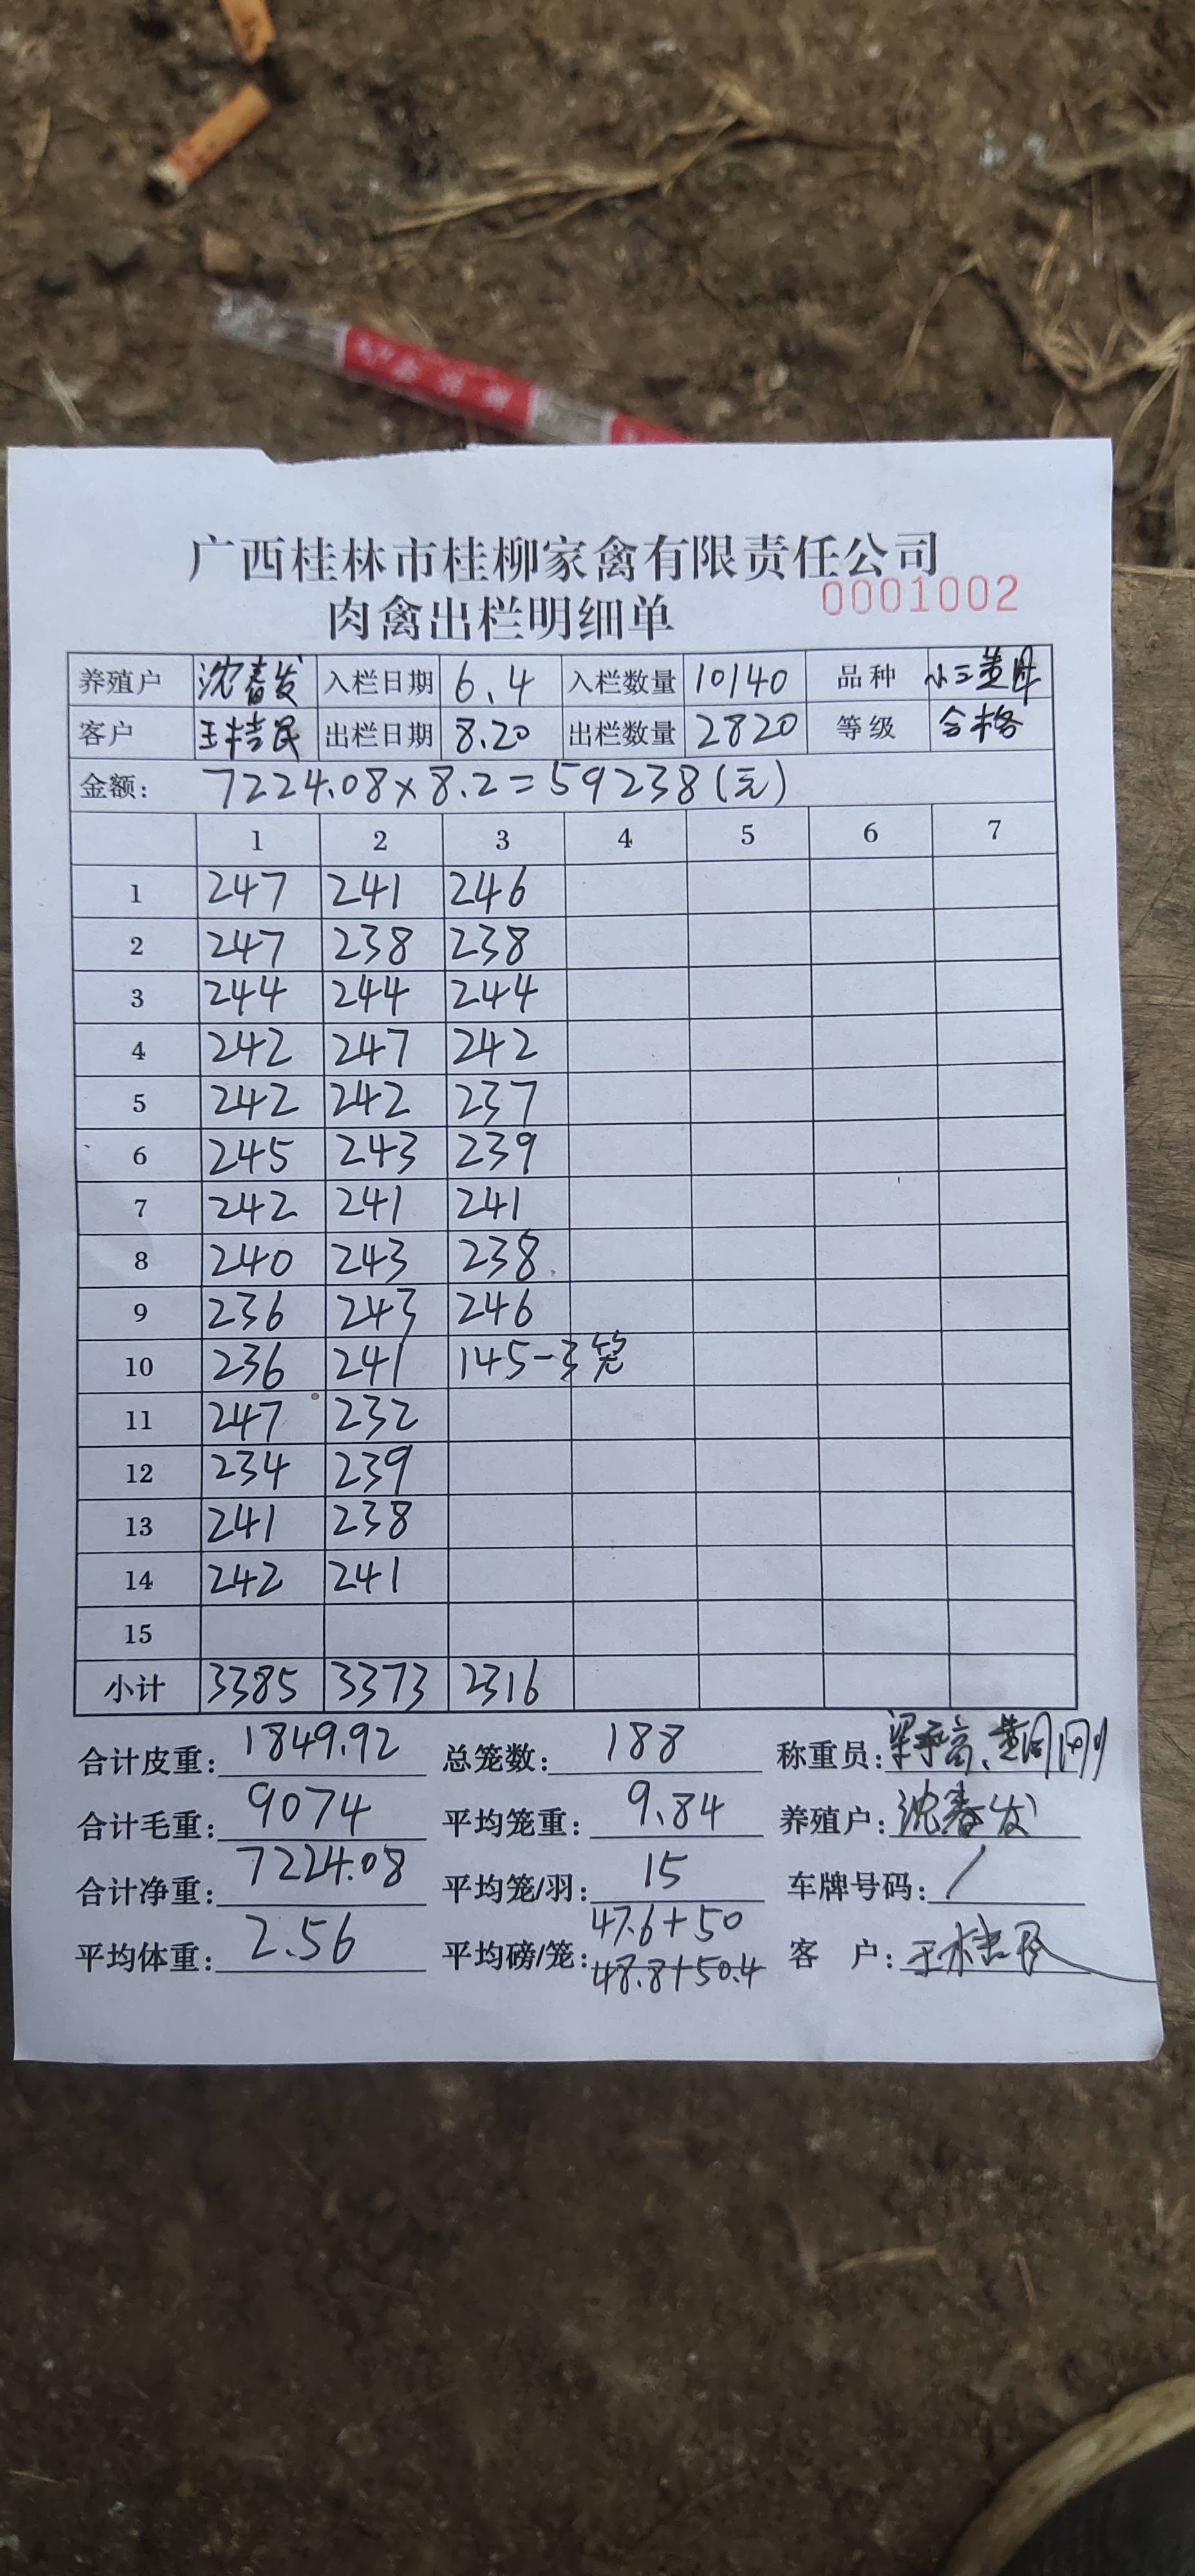 广西桂林市桂柳家禽有限责任公司
肉禽出栏明细单 0001002
养殖户 沈春发 入栏日期 6.4 入栏数量 10140 品种 小三黄母
客户 王桂民 出栏日期 8.20 出栏数量 2820 等级 合格
金额: 7224.08×8.2=59238(元)
1 2 3 4 5 6 7
1 247 241 246
2 247 238 238
3 244 244 244
4 242 247 242
5 242 242 237
6 245 243 239
7 242 241 241
8 240 243 238
9 236 243 246
10 236 241 145-3笼
11 247 232
12 234 239
13 241 238
14 242 241
15
小计 3385 3373 2316
合计皮重: 1849.92 总笼数: 188 称重员:
合计毛重: 9074 平均笼重: 9.84 养殖户: 沈春发
合计净重: 7224.08 平均笼/羽: 15 车牌号码: /
47.6+50
平均体重: 2.56 平均磅/笼: 48.8+50.4 客 户: 王桂民